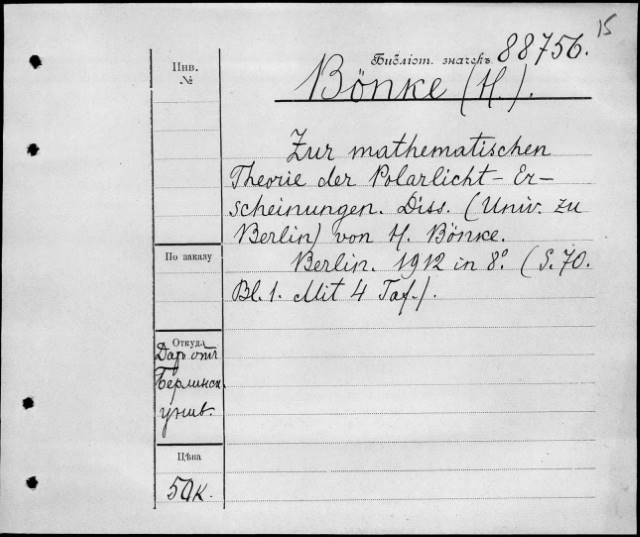 15
Библіот. значекъ 88756.
Bönke (H.).
Инв.
№
Zur mathematischen
Theorie der Polarlicht-Er-
scheinungen. Diss. (Univ. zu
Berlin) von H. Bönke.
Berlin. 1912 in 8°. (S. 70.
Bl. 1. Mit 4 Taf.).
По заказу
Откуда
Даръ отъ
Берлинск.
унив.
Цѣна
50к.